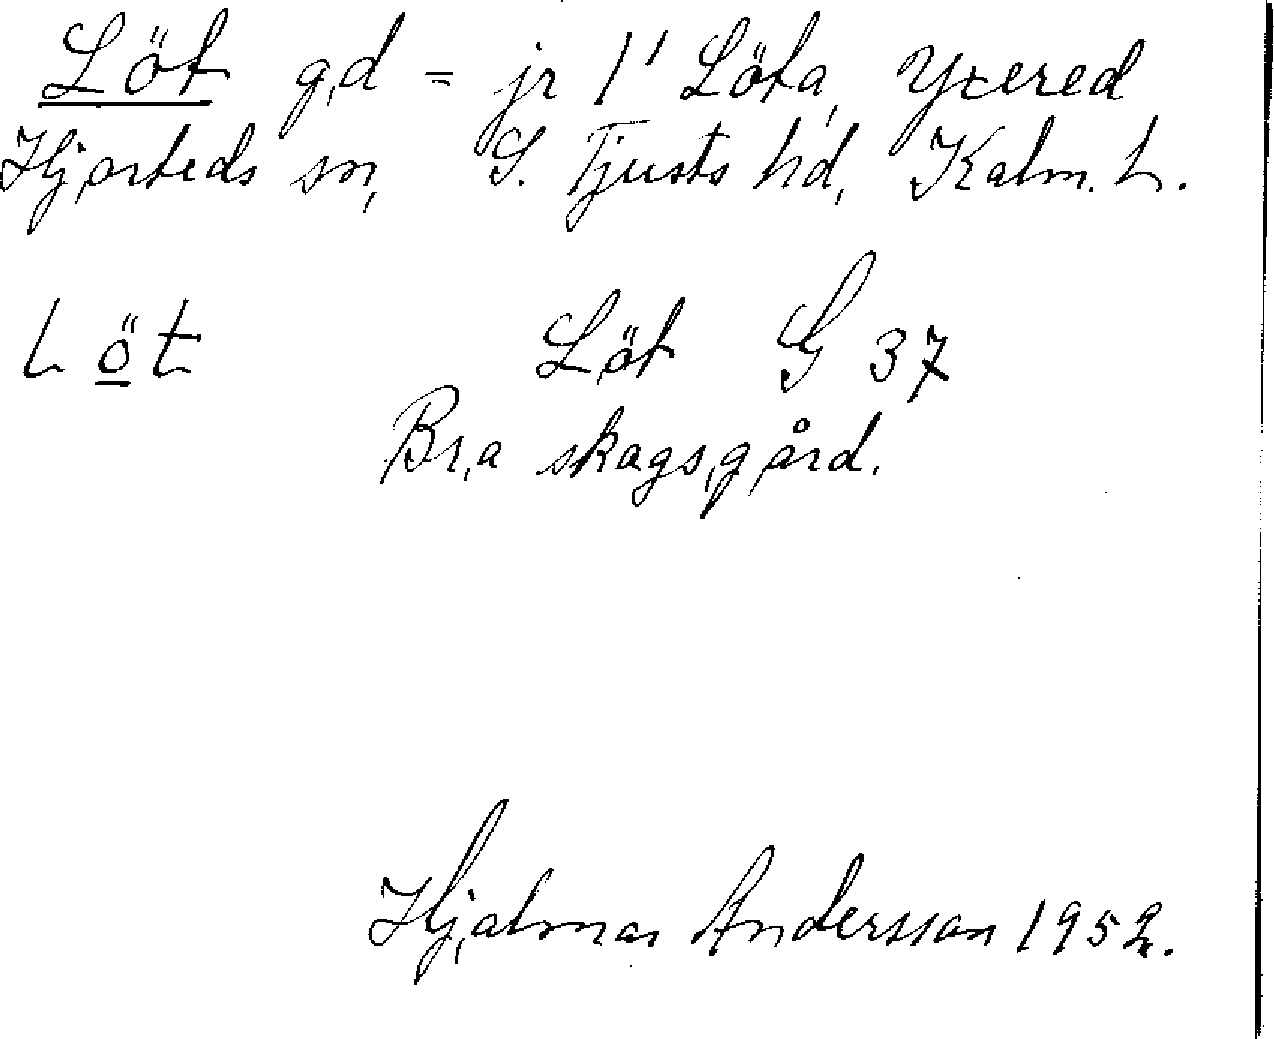 Löt gd = jr 1' Löta, Yxered
Hjorteds sn, S. Tjusts hd, Kalm. L.
Löt Löt G 37
Bra skogsgård.
Hjalmar Andersson 1952.